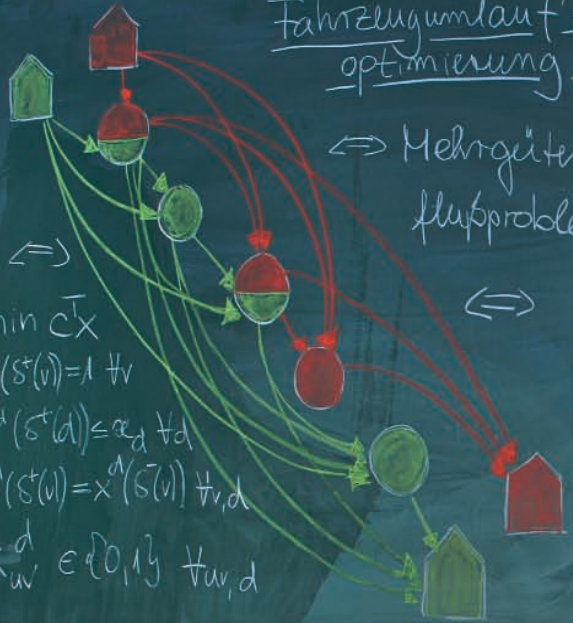 Fahrzeugumlauf-
optimierung
⇔ Mehrgüter
flußproble
⇔
⇔
min cᵀx
(δ⁺(v))=1 ∀v
ᵈ(δ⁺(d))≤ϰ_d ∀d
ᵈ(δ⁺(v))=xᵈ(δ⁻(v)) ∀v,d
xᵈ_uv ∈{0,1} ∀uv,d